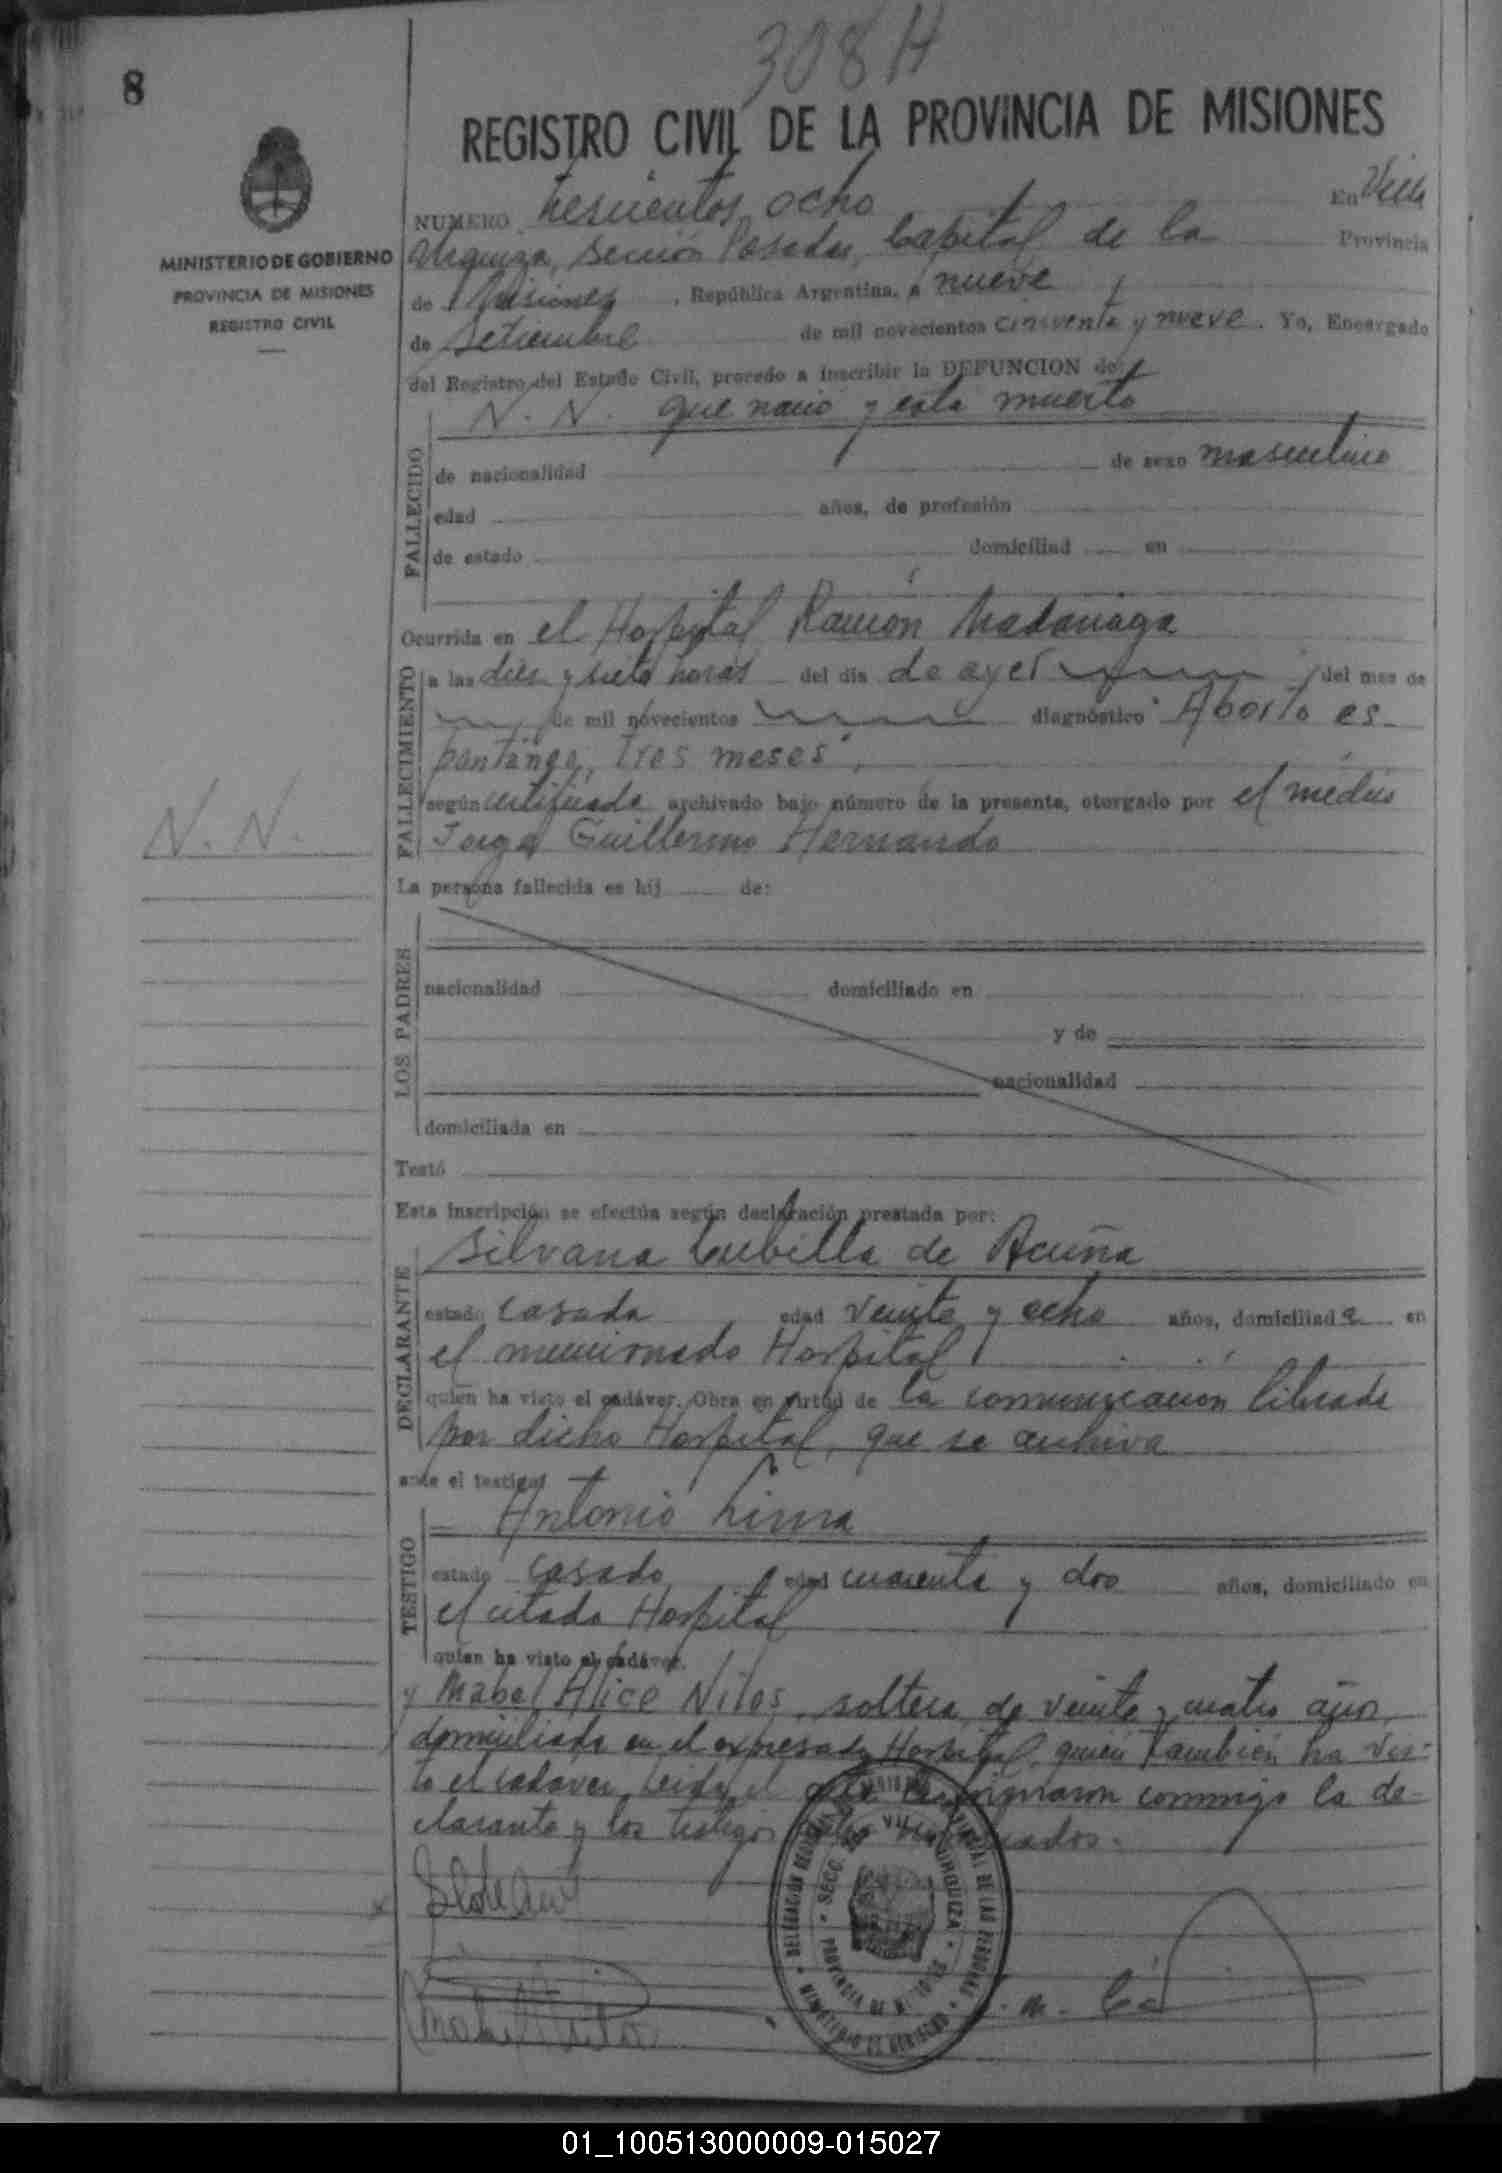 308 H
8
REGISTRO CIVIL DE LA PROVINCIA DE MISIONES
MINISTERIO DE GOBIERNO
PROVINCIA DE MISIONES
REGISTRO CIVIL
NUMERO trescientos ocho En Villa
Urquiza, Sección Posadas, Capital de la Provincia
de Misiones, República Argentina, a nueve
de Setiembre de mil novecientos cincuenta y nueve. Yo, Encargado
del Registro del Estado Civil, procedo a inscribir la DEFUNCION de:
N. N. que nació y está muerto
FALLECIDO
de nacionalidad de sexo masculino
edad años, de profesión
de estado domiciliad en
Ocurrida en el Hospital Ramón Madariaga
FALLECIMIENTO
a las diez y siete horas del día de ayer del mes de
de mil novecientos diagnóstico "Aborto es-
pontáneo, tres meses",
según certificado archivado bajo número de la presente, otorgado por el médico
Jorge Guillermo Hernando
N. N.
La persona fallecida es hij de:
LOS PADRES
nacionalidad domiciliado en
y de
nacionalidad
domiciliada en
Testó
Esta inscripción se efectúa según declaración prestada por:
DECLARANTE
Silvana Cubilla de Acuña
estado casada edad veinte y ocho años, domiciliada en
el mencionado Hospital
quien ha visto el cadáver. Obra en virtud de la comunicación librada
por dicho Hospital, que se archiva
ante el testigo:
TESTIGO
Antonio Lima
estado casado edad cuarenta y dos años, domiciliado en
el citado Hospital
quien ha visto el cadáver.
y Mabel Alice Nilos, soltera, de veinte y cuatro años,
domiciliada en el expresado Hospital, quien también ha vis-
to el cadáver. Leída el acta la firmaron conmigo la de-
clarante y los testigos
SECC. VILLA URQUIZA
PROVINCIA DE MISIONES
MINISTERIO DE GOBIERNO
01_100513000009-015027